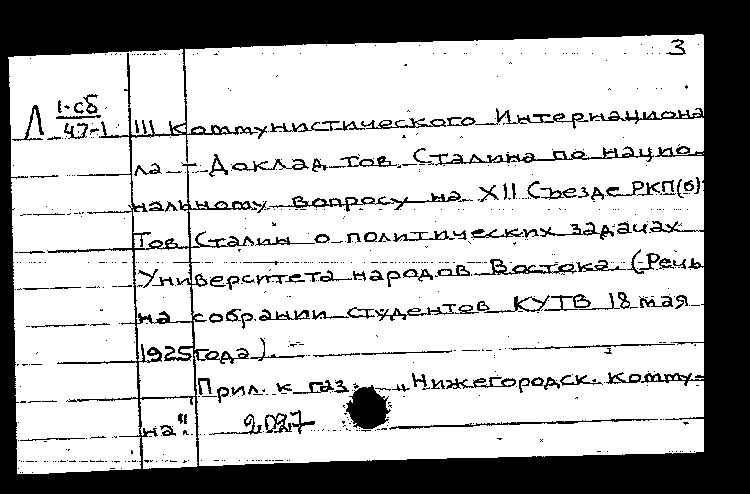 3
Л 1-сб
47-1
III Коммунистического Интернациона
ла - Доклад тов. Сталина по нацио-
нальному вопросу на XII Съезде РКП(б)
Тов Сталин о политических задачах
Университета народов Востока. (Речь
на собрании студентов КУТВ 18 мая
1925 года). -
Прил. к газ. „Нижегородск. Комму-
на".